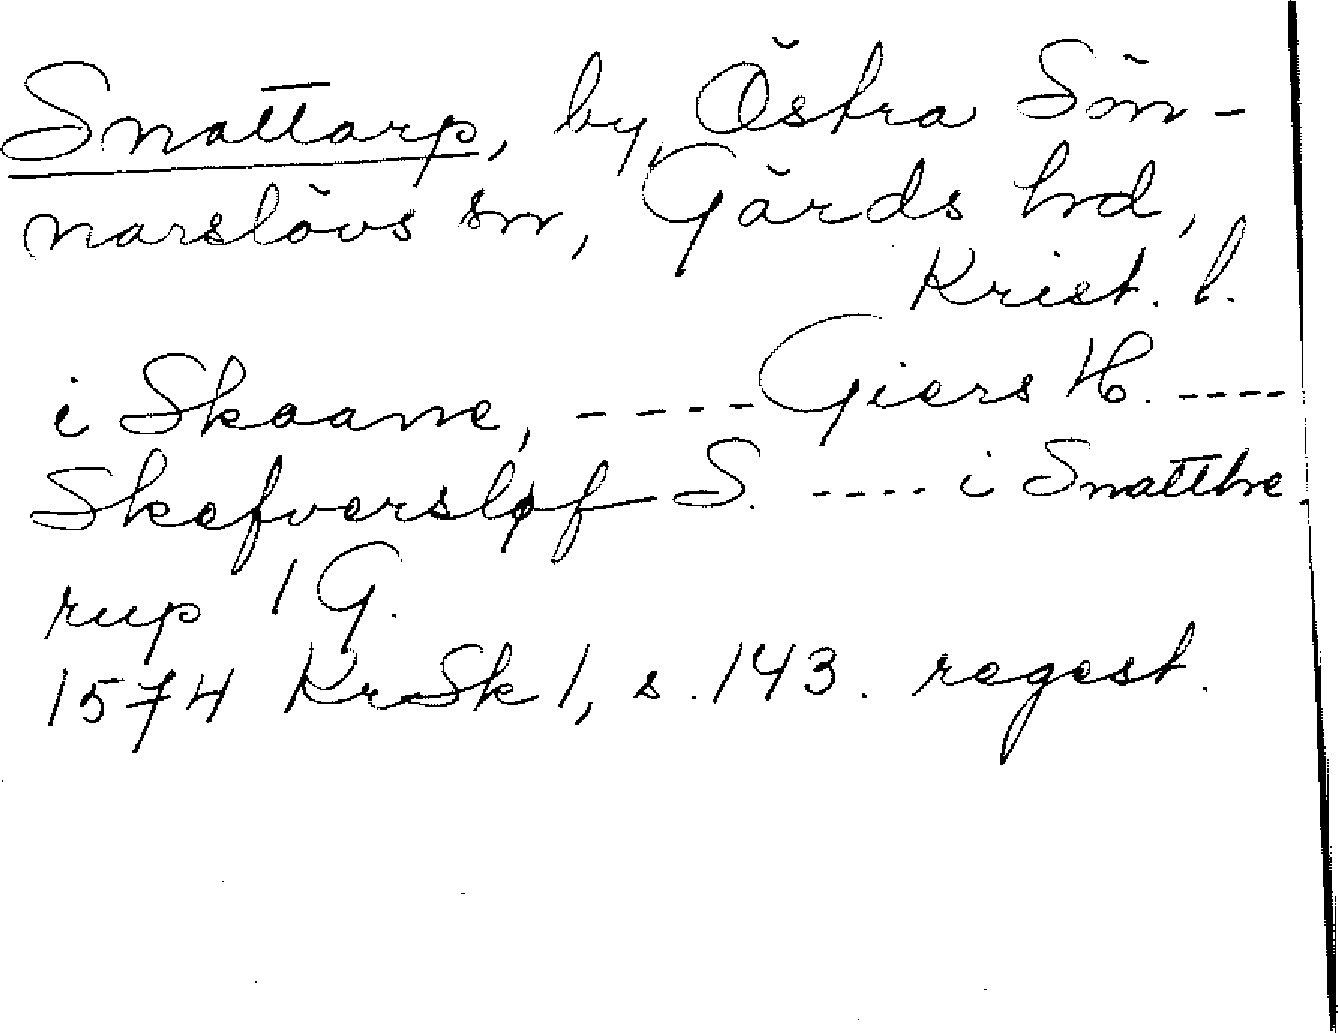 Snattarp, by, Östra Sön-
narslövs sn, Gärds hd,
Krist. l.
i Skaane, ---- Giers H. ----
Skefversløf S. ---- i Snatthe
rup 1 G.
1574 KrSk 1, s. 143. regest.